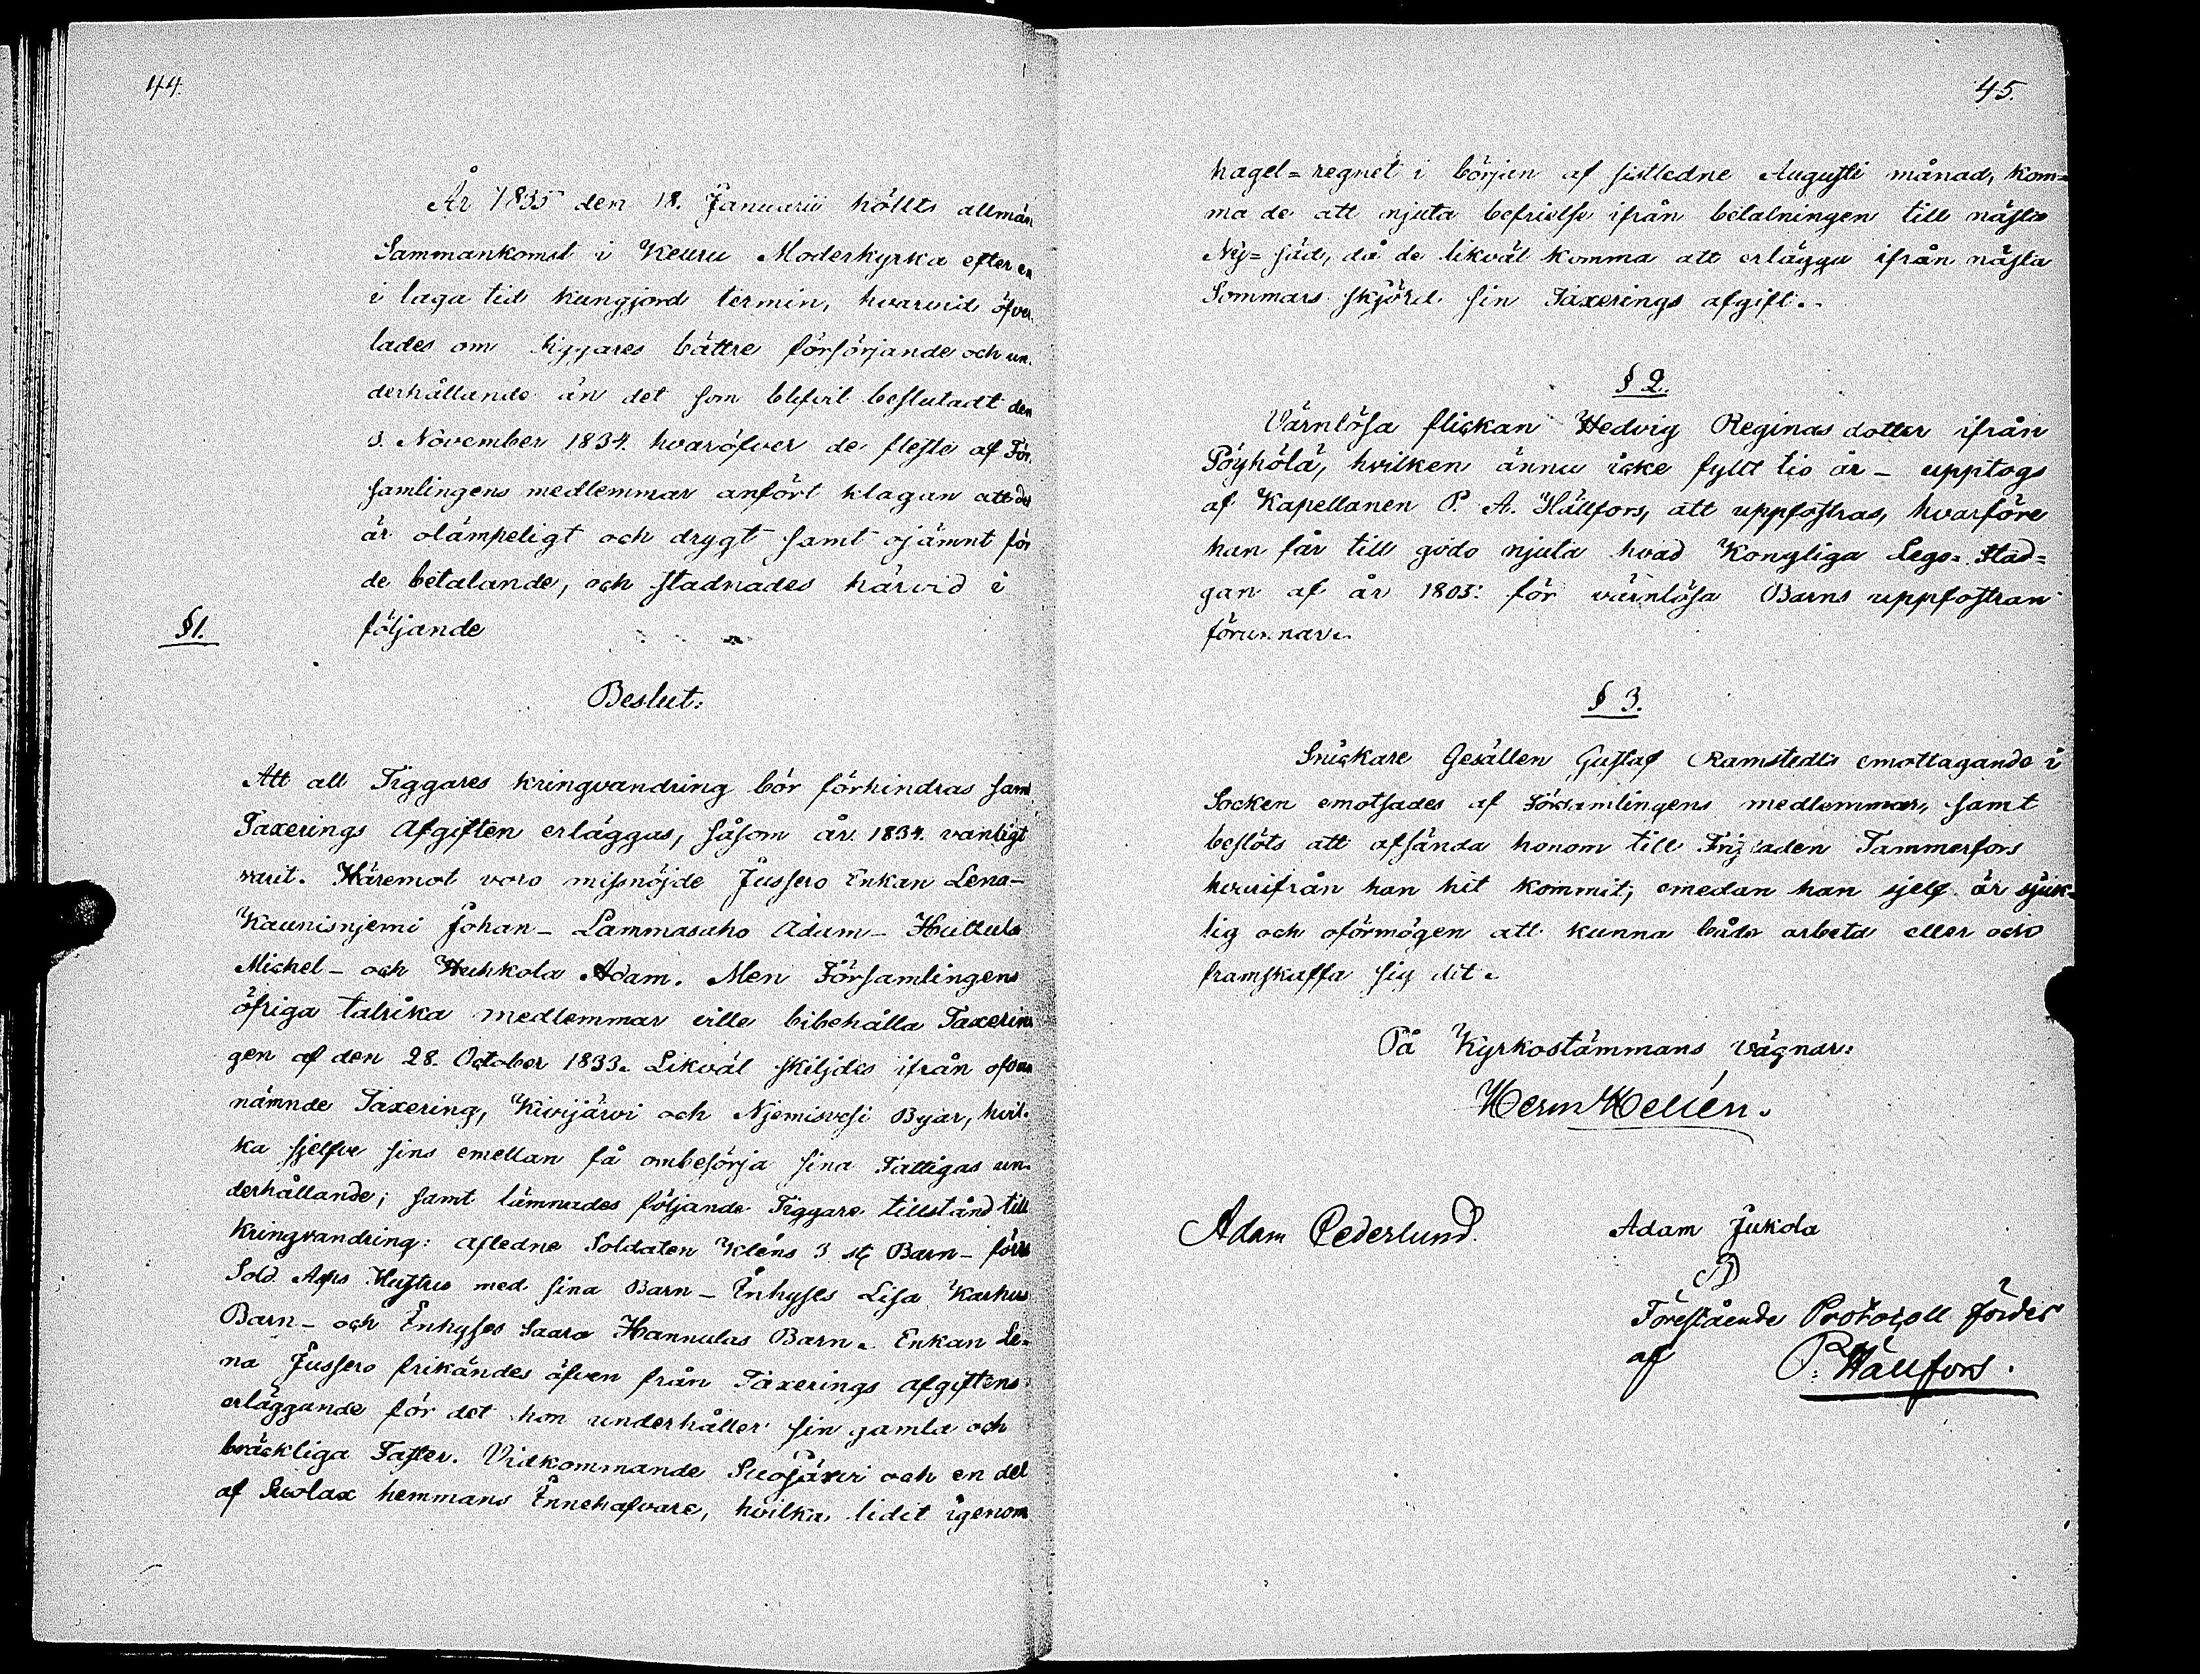 44.
År 1835 den 18. Januarii hölts allmän
Sammankomst i Keuru Moderkyrka efter en
i laga tid kungjord termin, hvarvid öfver
lades om Tiggares bättre försörjande och un-
derhållande än det som blifvit beslutadt den
3. November 1834. hvaröfver de fleste af För-
samlingens medlemmar anfört klagan att det
är olämpeligt och drygt samt ojämnt för
de betalande, och stadnades härvid i
§1. följande
Beslut:
Att all Tiggares kringvandring bör förhindras samt
Taxerings Afgiften erläggas, såsom år 1834. vanligt
varit. Häremot voro missnöjde Jussero Enkan Lena-
Kaunisnjemi Johan - Lammasaho Adam - Huttula
Michel - och Huhkola Adam. Men Församlingens
öfriga talrika medlemmar ville bibehålla Taxerin
gen af den 28. October 1833. Likväl skiljdes ifrån ofvan
nämnde Taxering, Kivijärvi och Njemisvesi Byar, hvil-
ka sjelfve sins emellan få ombesörja sina Fattigas un-
derhållande; samt lämnades följande Tiggare tillstånd till
kringvandring: afledne Soldaten Kléns 3 st Barn - förre
Sold. Hustru med sina Barn - Enhyses Lisa Karhus
Barn - och Enhyses Saara Hannulas Barn. Enkan Le-
na Jussero frikändes äfven från Taxerings afgiftens
erläggande för det hon underhåller sin gamla och
bräckliga Faster. Vidkommande Suojärvi och en del
af Suolax hemmans Innehafvare, hvilka lidit igenom
45.
hagel=regnet i början af sistledne Augusti månad, kom=
ma de att njuta befrielse ifrån betalningen till nästa
Ny=säd, då de likväl komma att erlägga ifrån nästa
Sommars skjörd sin Taxerings afgift.
§ 2.
Värnlösa flickan Hedvig Reginas dotter ifrån
Pöyhölä, hvilken ännu icke fyllt tio år - upptogs
af Kapellanen P. A. Hällfors, att uppfostras, hvarföre
han får till godo njuta hvad Kongliga Lego=Stad=
gan af år 1805: för värnlösa Barns uppfostran
förunnar.
§ 3.
Snickare Gesällen Gustaf Ramstedts emottagande i
Socken emotsades af Församlingens medlemmar, samt
beslöts att afsända honom till Fristaden Tammerfors
hvarifrån han hit kommit; emedan han sjelf är sjuk-
lig och oförmögen att kunna både arbeta eller och
framskaffa sig dit.
På Kyrkostämmans vägnar:
Herm Hellén.
Adam Cederlund.
Adam Jukola
Förestående Protocoll fördes
af P. Hällfors.